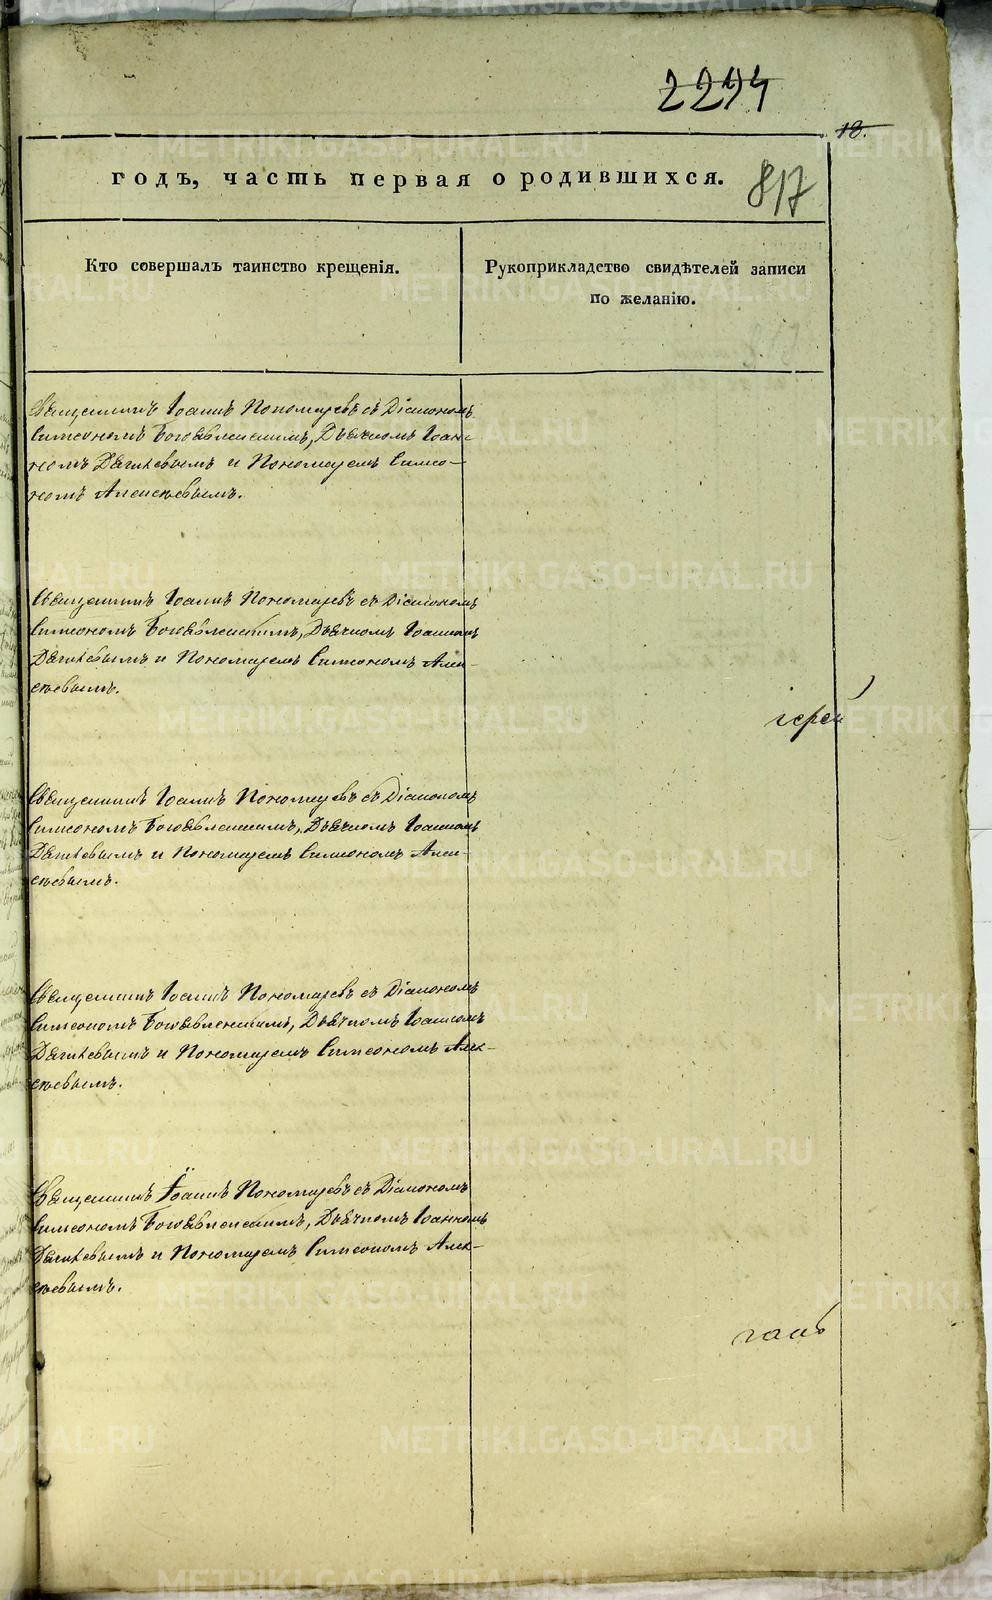 2294
18.
годъ, часть первая о родившихся.
817
Кто совершалъ таинство крещенія.
Рукоприкладство свидѣтелей записи
по желанію.
Священникъ Іоаннъ Пономаревъ съ Діакономъ
Симеономъ Богоявленскимъ, Дьячкомъ Іоан-
номъ Дягилевымъ и Пономаремъ Симео-
номъ Алексѣевымъ.
Священникъ Іоаннъ Пономаревъ съ Діакономъ
Симеономъ Богоявленскимъ, Дьячкомъ Іоанномъ
Дягилевымъ и Пономаремъ Симеономъ Алек-
сѣевымъ.
іерей
Священникъ Іоаннъ Пономаревъ съ Діакономъ
Симеономъ Богоявленскимъ, Дьячкомъ Іоанномъ
Дягилевымъ и Пономаремъ Симеономъ Алек-
сѣевымъ.
Священникъ Іоаннъ Пономаревъ съ Діакономъ
Симеономъ Богоявленскимъ, Дьячкомъ Іоанномъ
Дягилевымъ и Пономаремъ Симеономъ Алек-
сѣевымъ.
Священникъ Іоаннъ Пономаревъ съ Діакономъ
Симеономъ Богоявленскимъ, Дьячкомъ Іоанномъ
Дягилевымъ и Пономаремъ Симеономъ Алек-
сѣевымъ.
METRIKI.GASO-URAL.RU